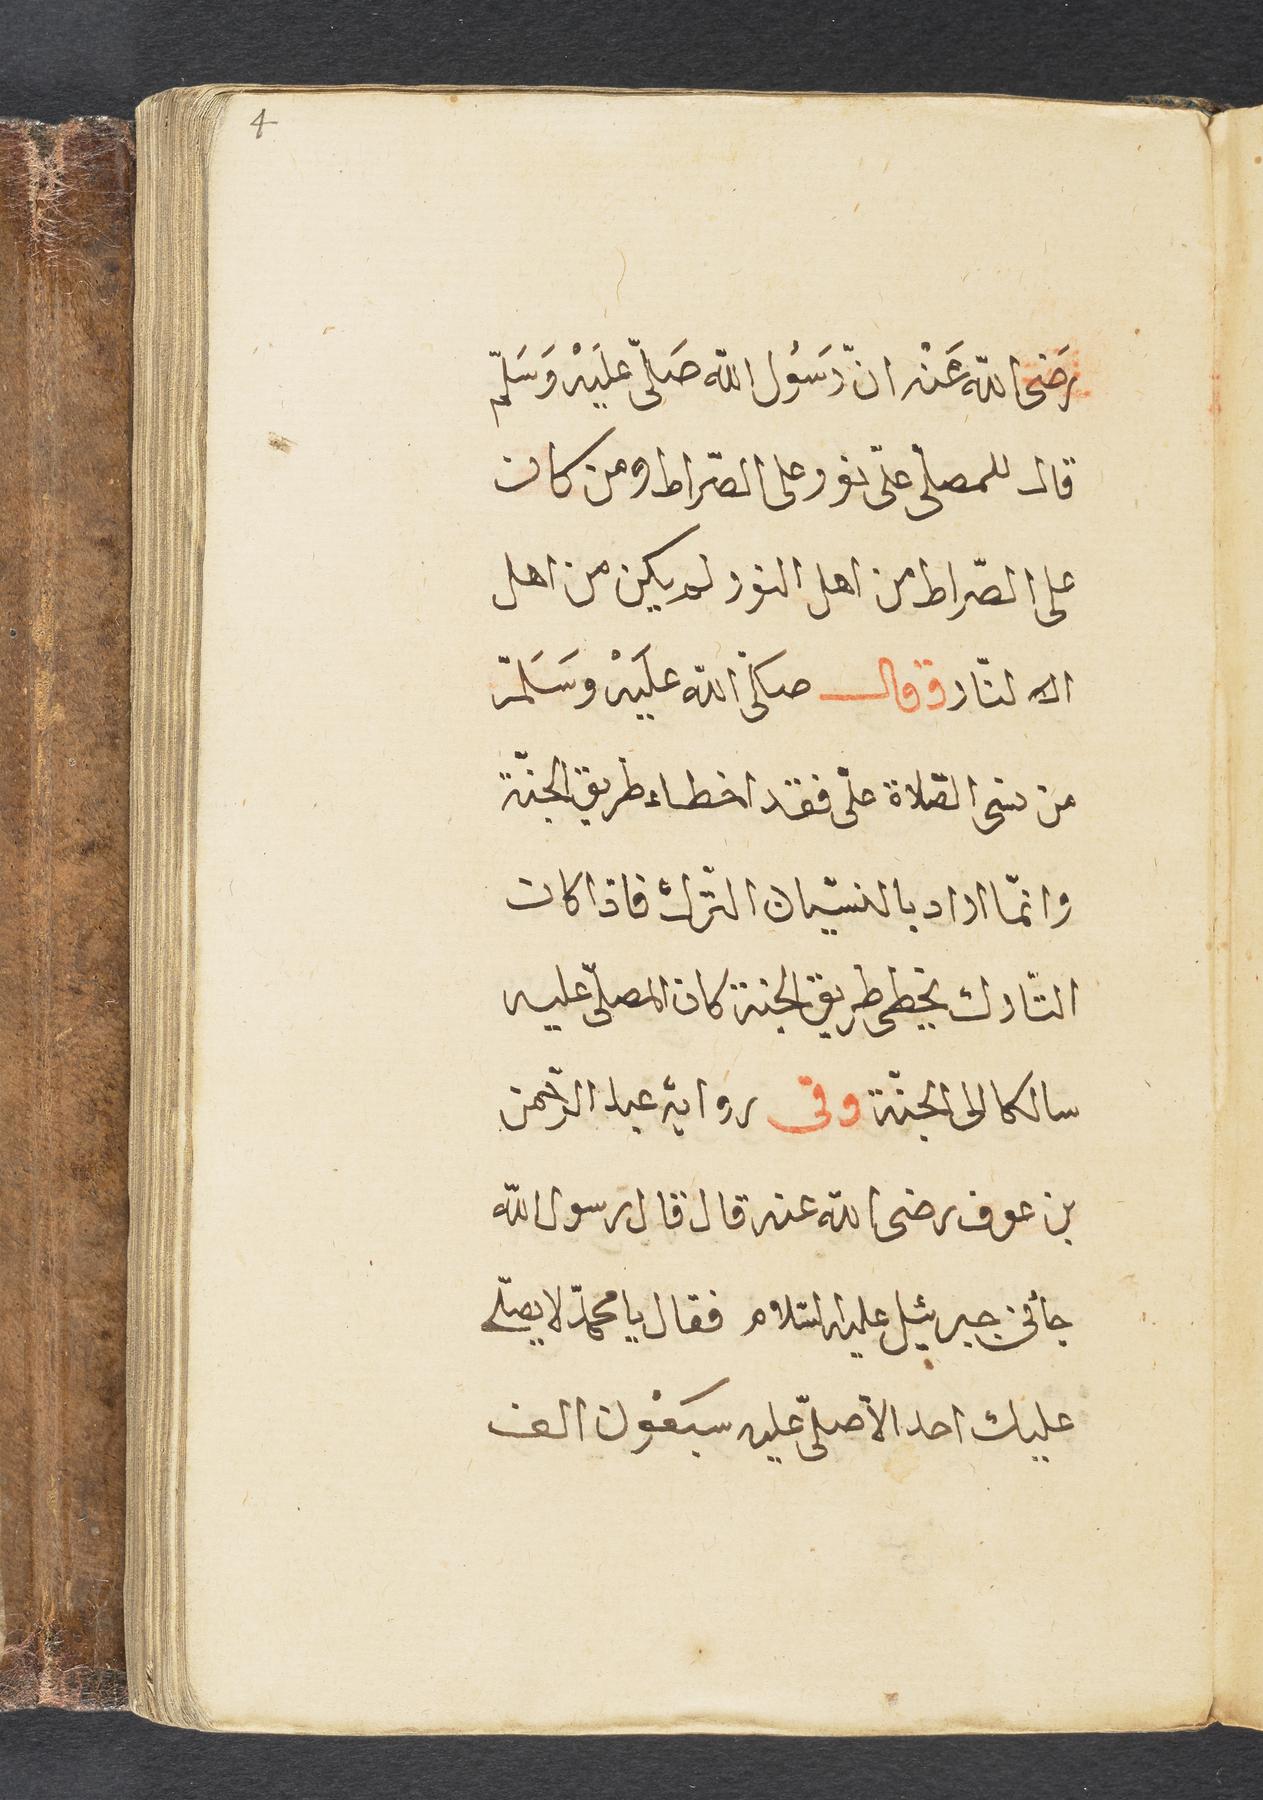 4
رَضى الله عَنْه انّ رَسُول الله صَلّى عليَه وَسَلّم
قال للمصلّى علىّ نور على الصّراط ومن كان
على الصّراط من اهل النور لم يكن من اهل
النّار وقال صلّىَ الله عليَهْ وسَلَمّ
من نسى الصّلاة علىّ فقد اخطاء طريق الجنّة
وانمّا اراد بالنسيّان التّرك فاذا كان
التّارك يخطى طريق الجنة كان المصلّى عليه
سالكا الى الجنّة وفى رواية عبد الرّحمن
بن عوف رضى الله عنه قال قال رسول الله
جأنى جبرئيل عليه السّلام فقال يا محمدّ لا يصلّى
عليك احد الاّ صلّى عليه سبَعْون الف